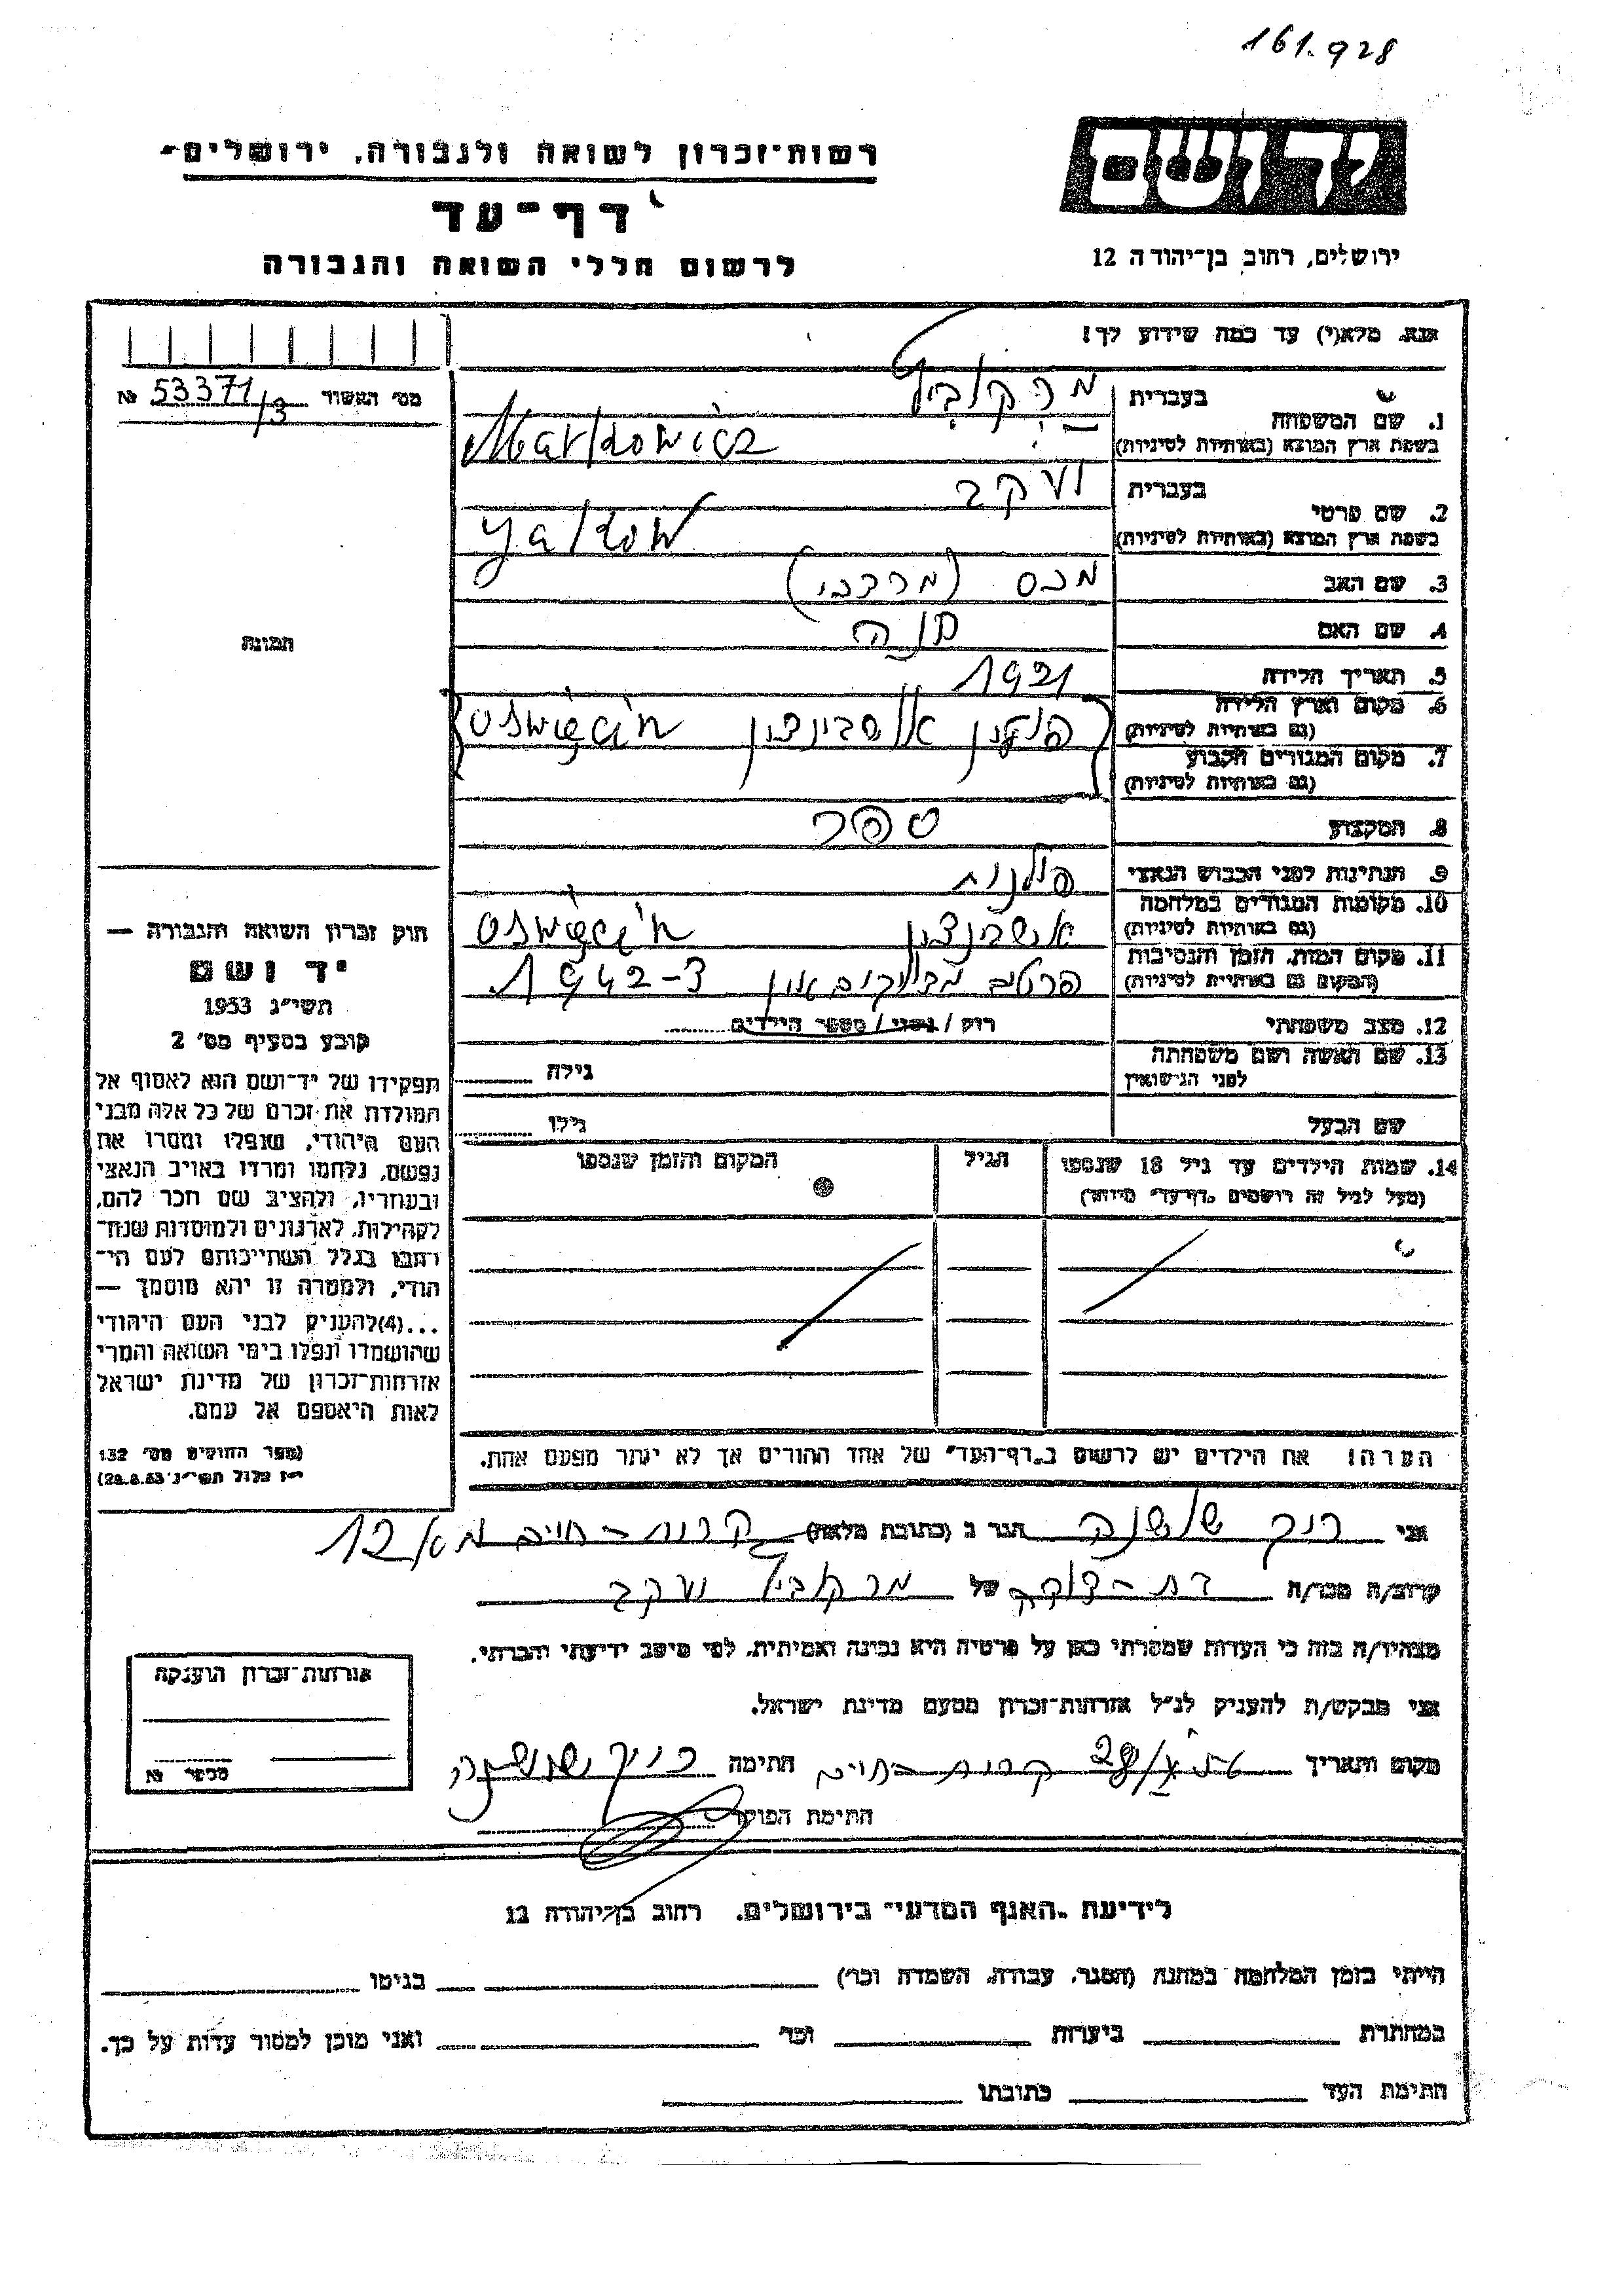 161.928
יד ושם
רשות־זכרון לשואה ולגבורה, ירושלים
דף־עד
ירושלים, רחוב בן־יהודה 12
לרשום חללי השואה והגבורה
אנא, מלא(י) עד כמה שידוע לך!
מס׳ האשור 53371/3 №
1. שם המשפחה
בעברית מרקוביץ
(בשפת ארץ המוצא (באותיות לטיניות Markowicz
2. שם פרטי
בעברית יעקב
(בשפת ארץ המוצא (באותיות לטיניות Yakow
3. שם האב מכס (מרדכי)
4. שם האם חנה
תמונה
5. תאריך הלידה 1921
6. מקום וארץ הלידה
(גם באותיות לטיניות) פולין אושבינצין Oświęcin
7. מקום המגורים הקבוע
(גם באותיות לטיניות)
8. המקצוע ספר
9. הנתינות לפני הכבוש הנאצי פולנית
10. מקומות המגורים במלחמה
(גם באותיות לטיניות) אושבינצין Oświęcin
11. מקום המות, הזמן והנסיבות
(המקום גם באותיות לטיניות) פרטים מדויקים אין 1942-3
12. מצב משפחתי רוק / נשוי / מספר הילדים
13. שם האשה ושם משפחתה
לפני הנישואין גילה
שם הבעל גילו
14. שמות הילדים עד גיל 18 שנספו
(מעל לגיל זה רושמים "דף־עד" מיוחד)
הגיל
המקום והזמן שנספו
חוק זכרון השואה והגבורה —
יד ושם
תשי״ג 1953
קובע בסעיף מס׳ 2
תפקידו של יד־ושם הוא לאסוף אל
המולדת את זכרם של כל אלה מבני
העם היהודי, שנפלו ומסרו את
נפשם, נלחמו ומרדו באויב הנאצי
ובעוזריו, ולהציב שם וזכר להם,
לקהילות, לארגונים ולמוסדות שנח־
רבו בגלל השתייכותם לעם הי־
הודי, ולמטרה זו יהא מוסמך —
...(4) להעניק לבני העם היהודי
שהושמדו ונפלו בימי השואה והמרי
אזרחות־זכרון של מדינת ישראל
לאות היאספם אל עמם.
(ספר החוקים מס׳ 132
י״ז אלול תשי״ג 28.8.53)
הערה! את הילדים יש לרשום ב"דף־העד" של אחד ההורים אך לא יותר מפעם אחת.
אני רוק שושנה הגר ב (כתובת מלאה) קרית-חיים מא/12
קרוב/ה מכר/ה בת-דודה של מרקוביץ יעקב
מצהיר/ה בזה כי העדות שמסרתי כאן על פרטיה היא נכונה ואמיתית, לפי מיטב ידיעתי והכרתי.
אני מבקש/ת להעניק לנ״ל אזרחות־זכרון מטעם מדינת ישראל.
מקום ותאריך קרית-חיים חתימה רוק שושנה
חתימת הפוקד
אזרחות־זכרון הוענקה
מספר №
לידיעת "האגף המדעי" בירושלים. רחוב בן־יהודה 12
הייתי בזמן המלחמה במחנה (הסגר, עבודה, השמדה וכו׳) בגיטו
במחתרת ביערות וכו׳ ואני מוכן למסור עדות על כך.
חתימת העד כתובתו